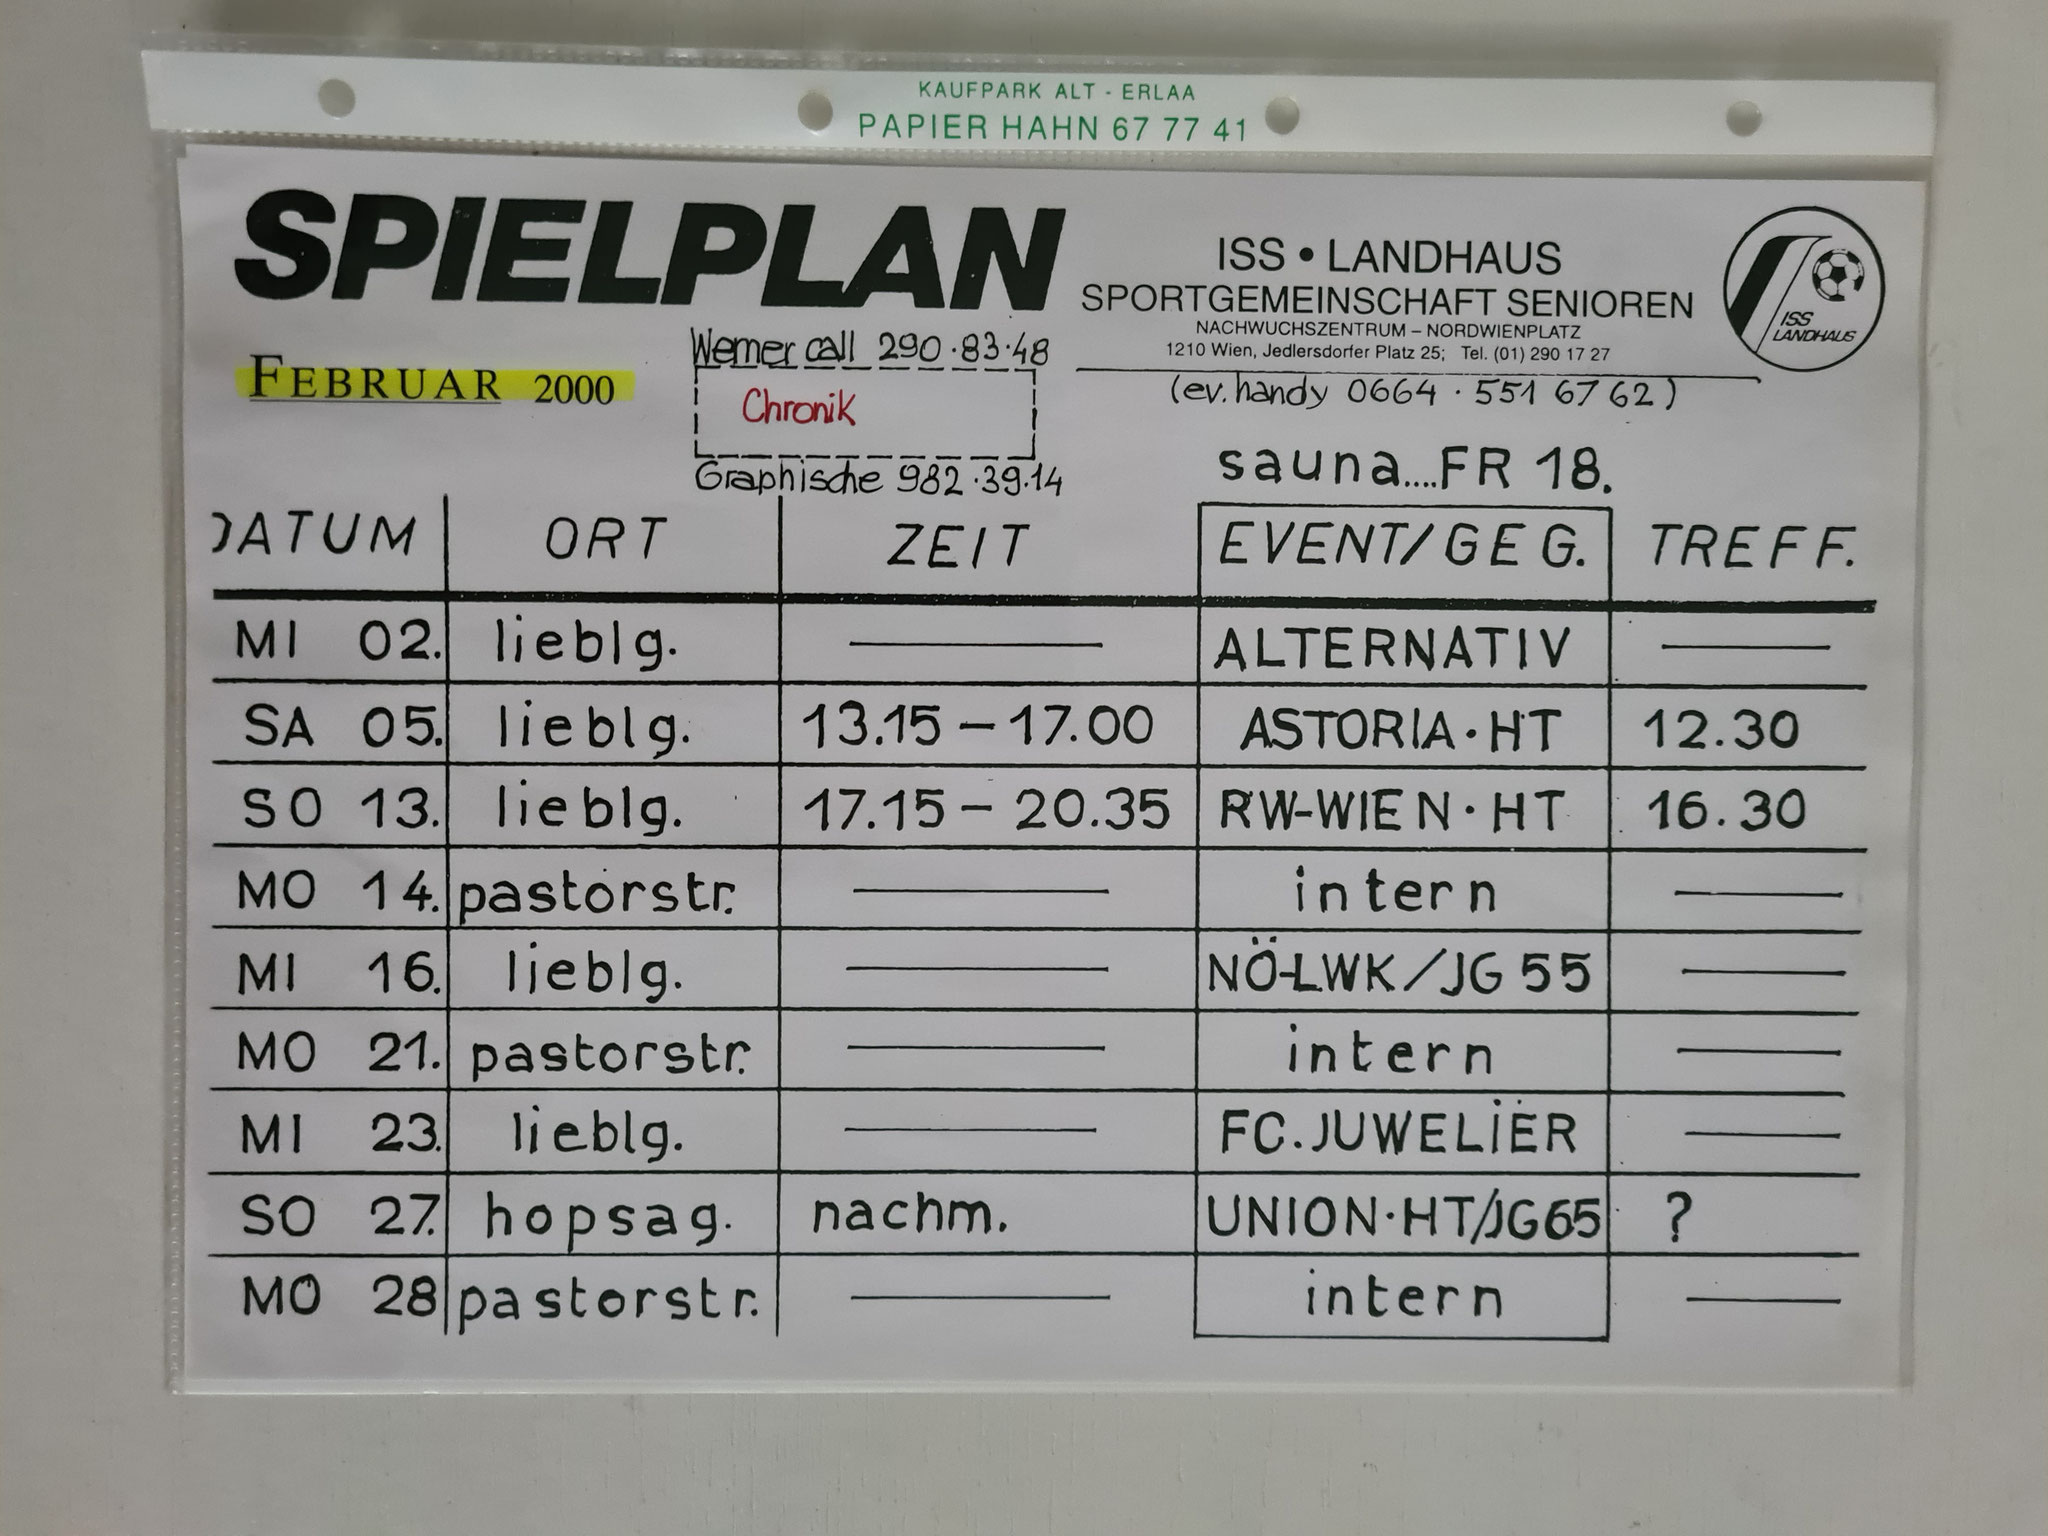 KAUFPARK ALT - ERLAA
PAPIER HAHN 67 77 41
SPIELPLAN
ISS • LANDHAUS
SPORTGEMEINSCHAFT SENIOREN
NACHWUCHSZENTRUM – NORDWIENPLATZ
1210 Wien, Jedlersdorfer Platz 25; Tel. (01) 290 17 27
ISS
LANDHAUS
FEBRUAR 2000
Werner call 290·83·48
Chronik
Graphische 982·39·14
(ev. handy 0664 · 551 67 62)
sauna....FR 18.
DATUM ORT ZEIT EVENT/GEG. TREFF.
MI 02. lieblg. ——— ALTERNATIV ———
SA 05. lieblg. 13.15 – 17.00 ASTORIA·HT 12.30
SO 13. lieblg. 17.15 – 20.35 RW-WIEN·HT 16.30
MO 14. pastorstr. ——— intern ———
MI 16. lieblg. ——— NÖ-LWK/JG 55 ———
MO 21. pastorstr. ——— intern ———
MI 23. lieblg. ——— FC.JUWELIER ———
SO 27. hopsag. nachm. UNION·HT/JG65 ?
MO 28 pastorstr. ——— intern ———